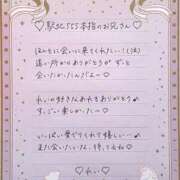 ♡駅ちかSSS本指のお兄さん♡
ほんとに会いに来てくれたぃ..！(泣)
遠い所からありがとうが ずっと
会いたかったんだよー♡
れいの好きなあれもありがとう
すごい楽しかたー♡
いっぱい愛でてくれて嬉しいー
また会いたいな、待ってるね♡
♡れい♡